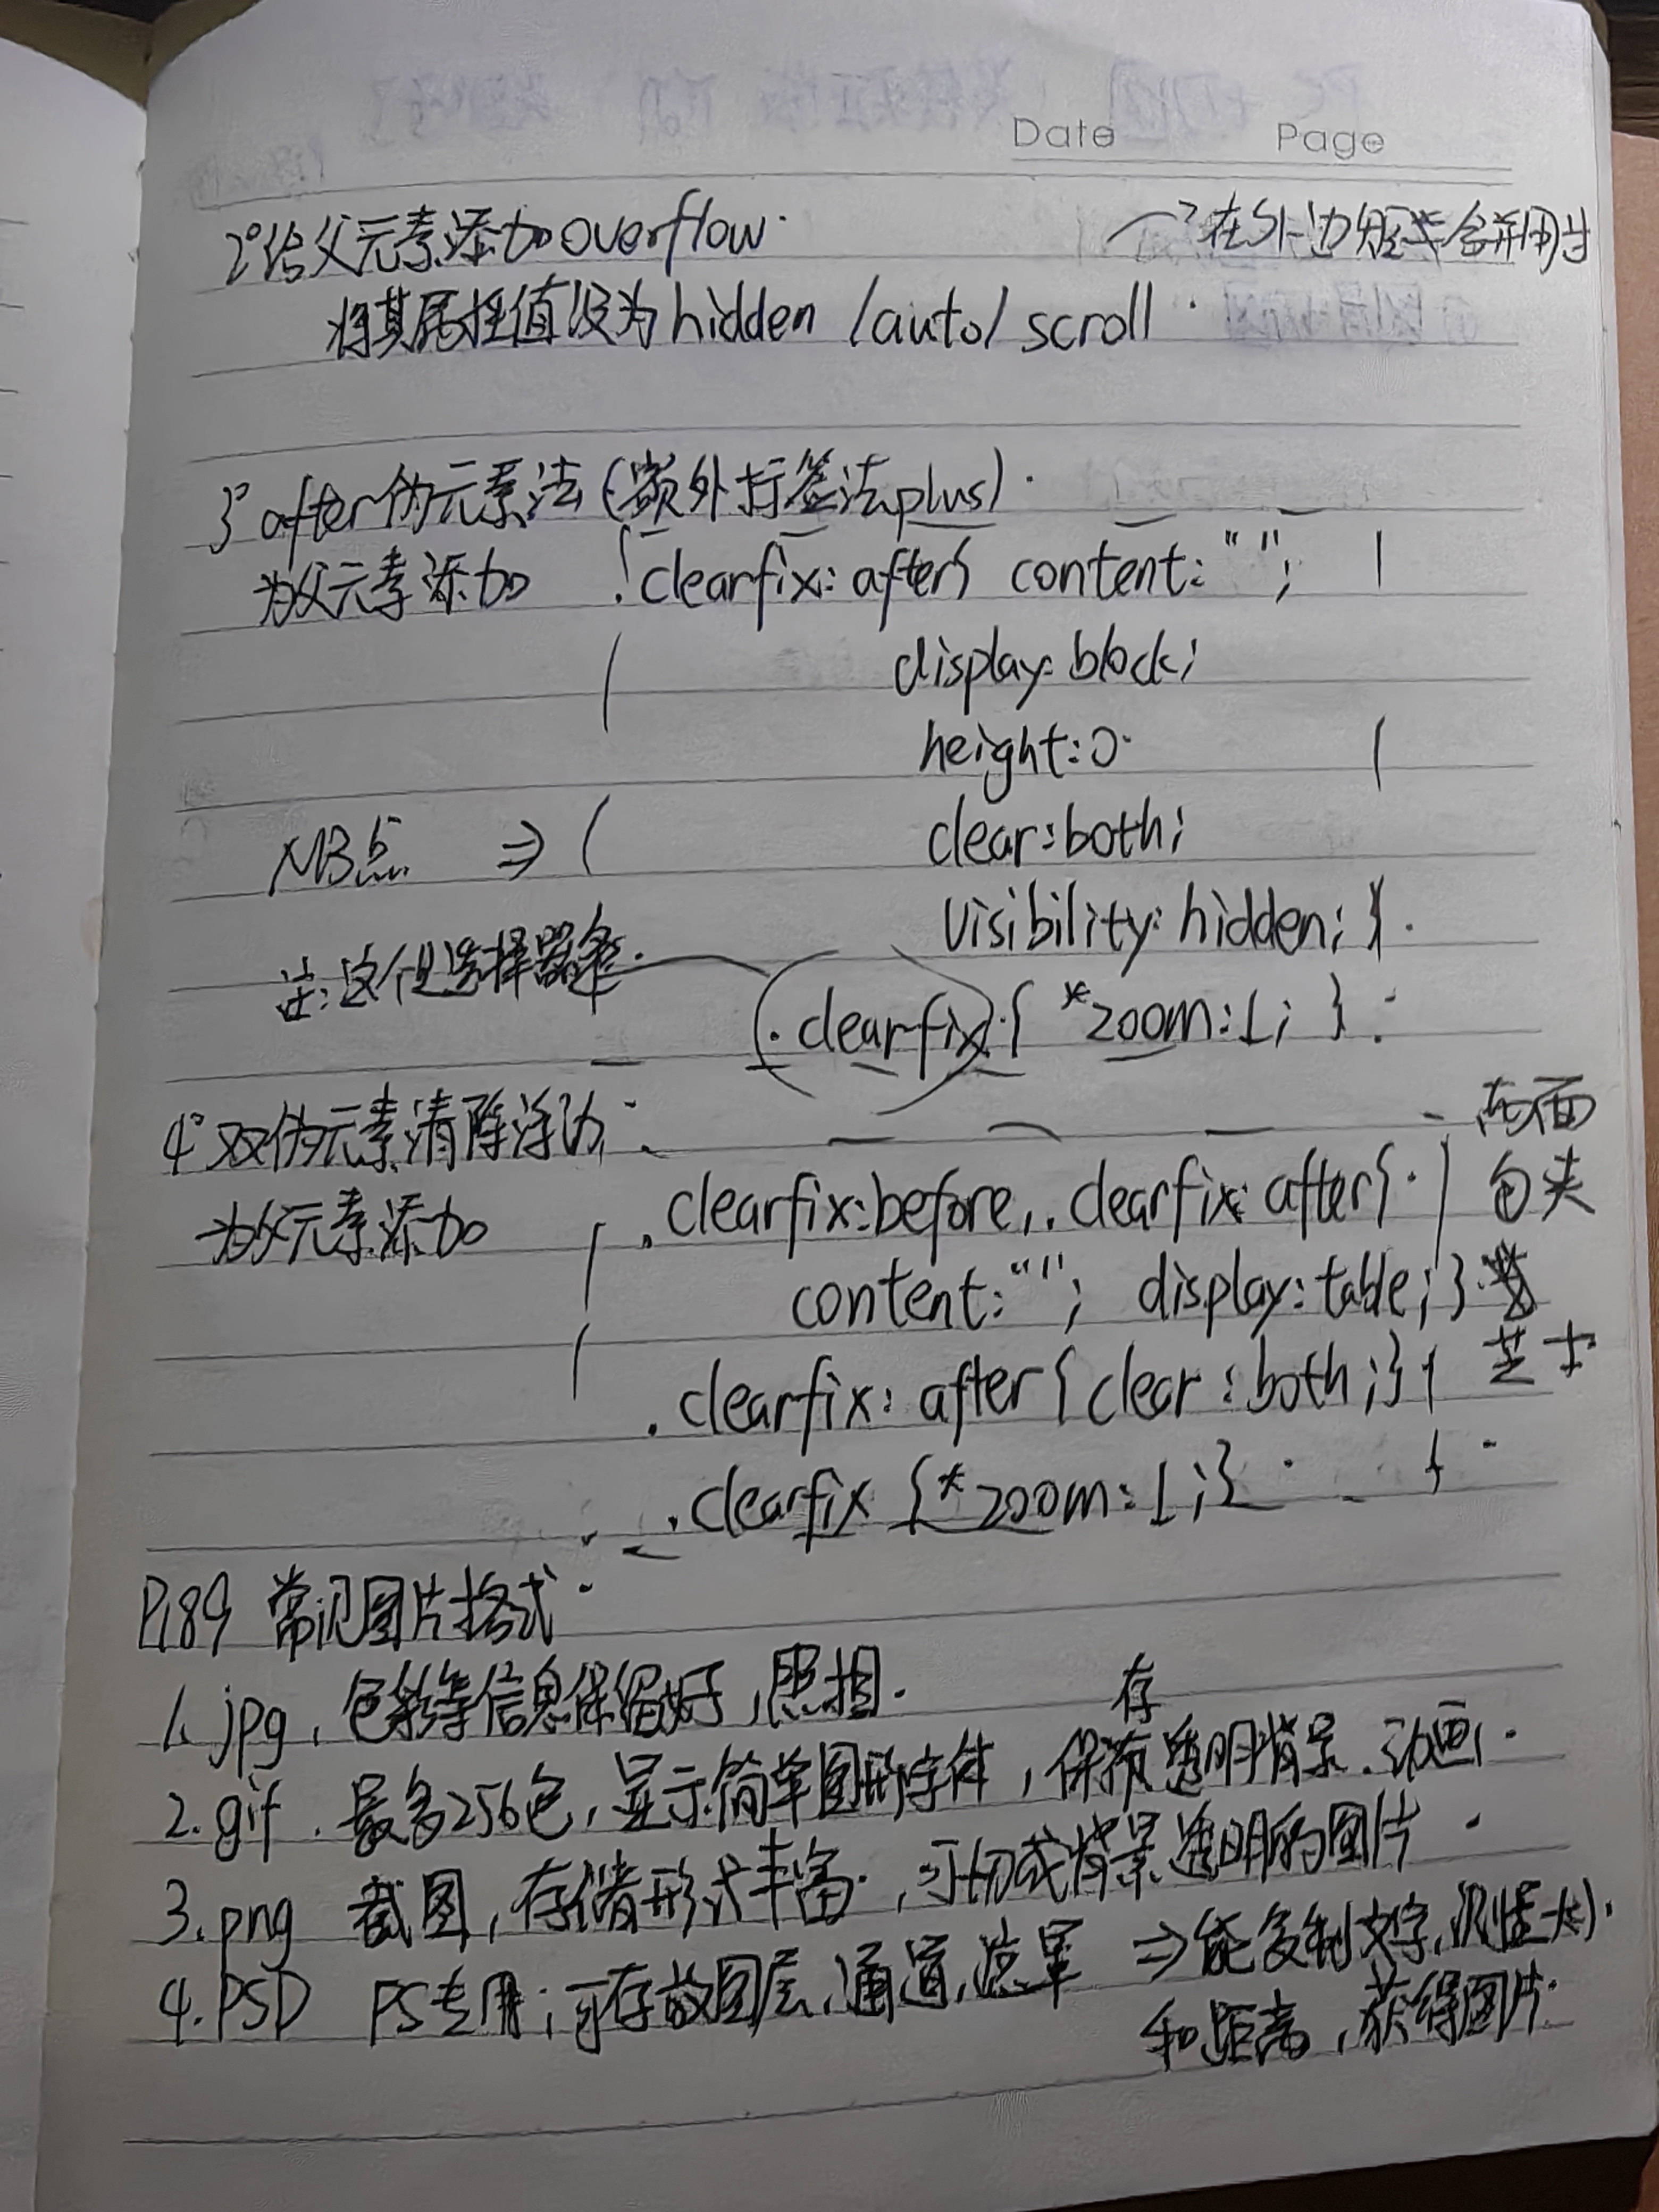 Date Page
2°给父元素添加overflow. →在外边距合并用过
将其属性值设为hidden /auto/ scroll
3° after伪元素法(额外标签法plus).
为父元素添加 .clearfix:after{ content:"";
display:block;
height:0
clear:both;
NB点 ⇒
visibility:hidden; }
注:这个是选择器拿
.clearfix{ *zoom:1; }
4° 双伪元素清除浮动:
两面
为父元素添加 .clearfix:before,.clearfix:after{ 包夹
content:""; display:table; }
.clearfix:after{clear:both;} 芝士
.clearfix {*zoom:1;}
P189 常见图片格式.
1. jpg, 色彩等信息保留好, 照相.
2. gif. 最多256色, 显示简单图形字体, 保存透明背景.动画.
3. png 截图, 存储形式丰富. ,可切成背景透明的图片
4. PSD PS专用;可存放图层,通道,遮罩 ⇒能复制文字,测量大小
和距离,获得图片.